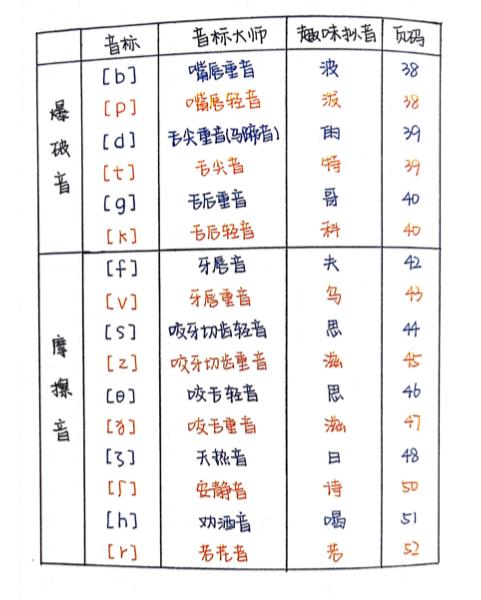 音标 音标大师 趣味拟音 页码
爆破音
[b] 嘴唇重音 波 38
[p] 嘴唇轻音 泼 38
[d] 舌尖重音(马蹄音) 39
[t] 舌尖音 特 39
[g] 舌后重音 哥 40
[k] 舌后轻音 科 40
摩擦音
[f] 牙唇音 夫 42
[v] 牙唇重音 乌 43
[s] 咬牙切齿轻音 思 44
[z] 咬牙切齿重音 滋 45
[θ] 咬舌轻音 思 46
[ð] 咬舌重音 滋 47
[ʒ] 天热音 日 48
[ʃ] 安静音 诗 50
[h] 劝酒音 喝 51
[r] 若花音 若 52